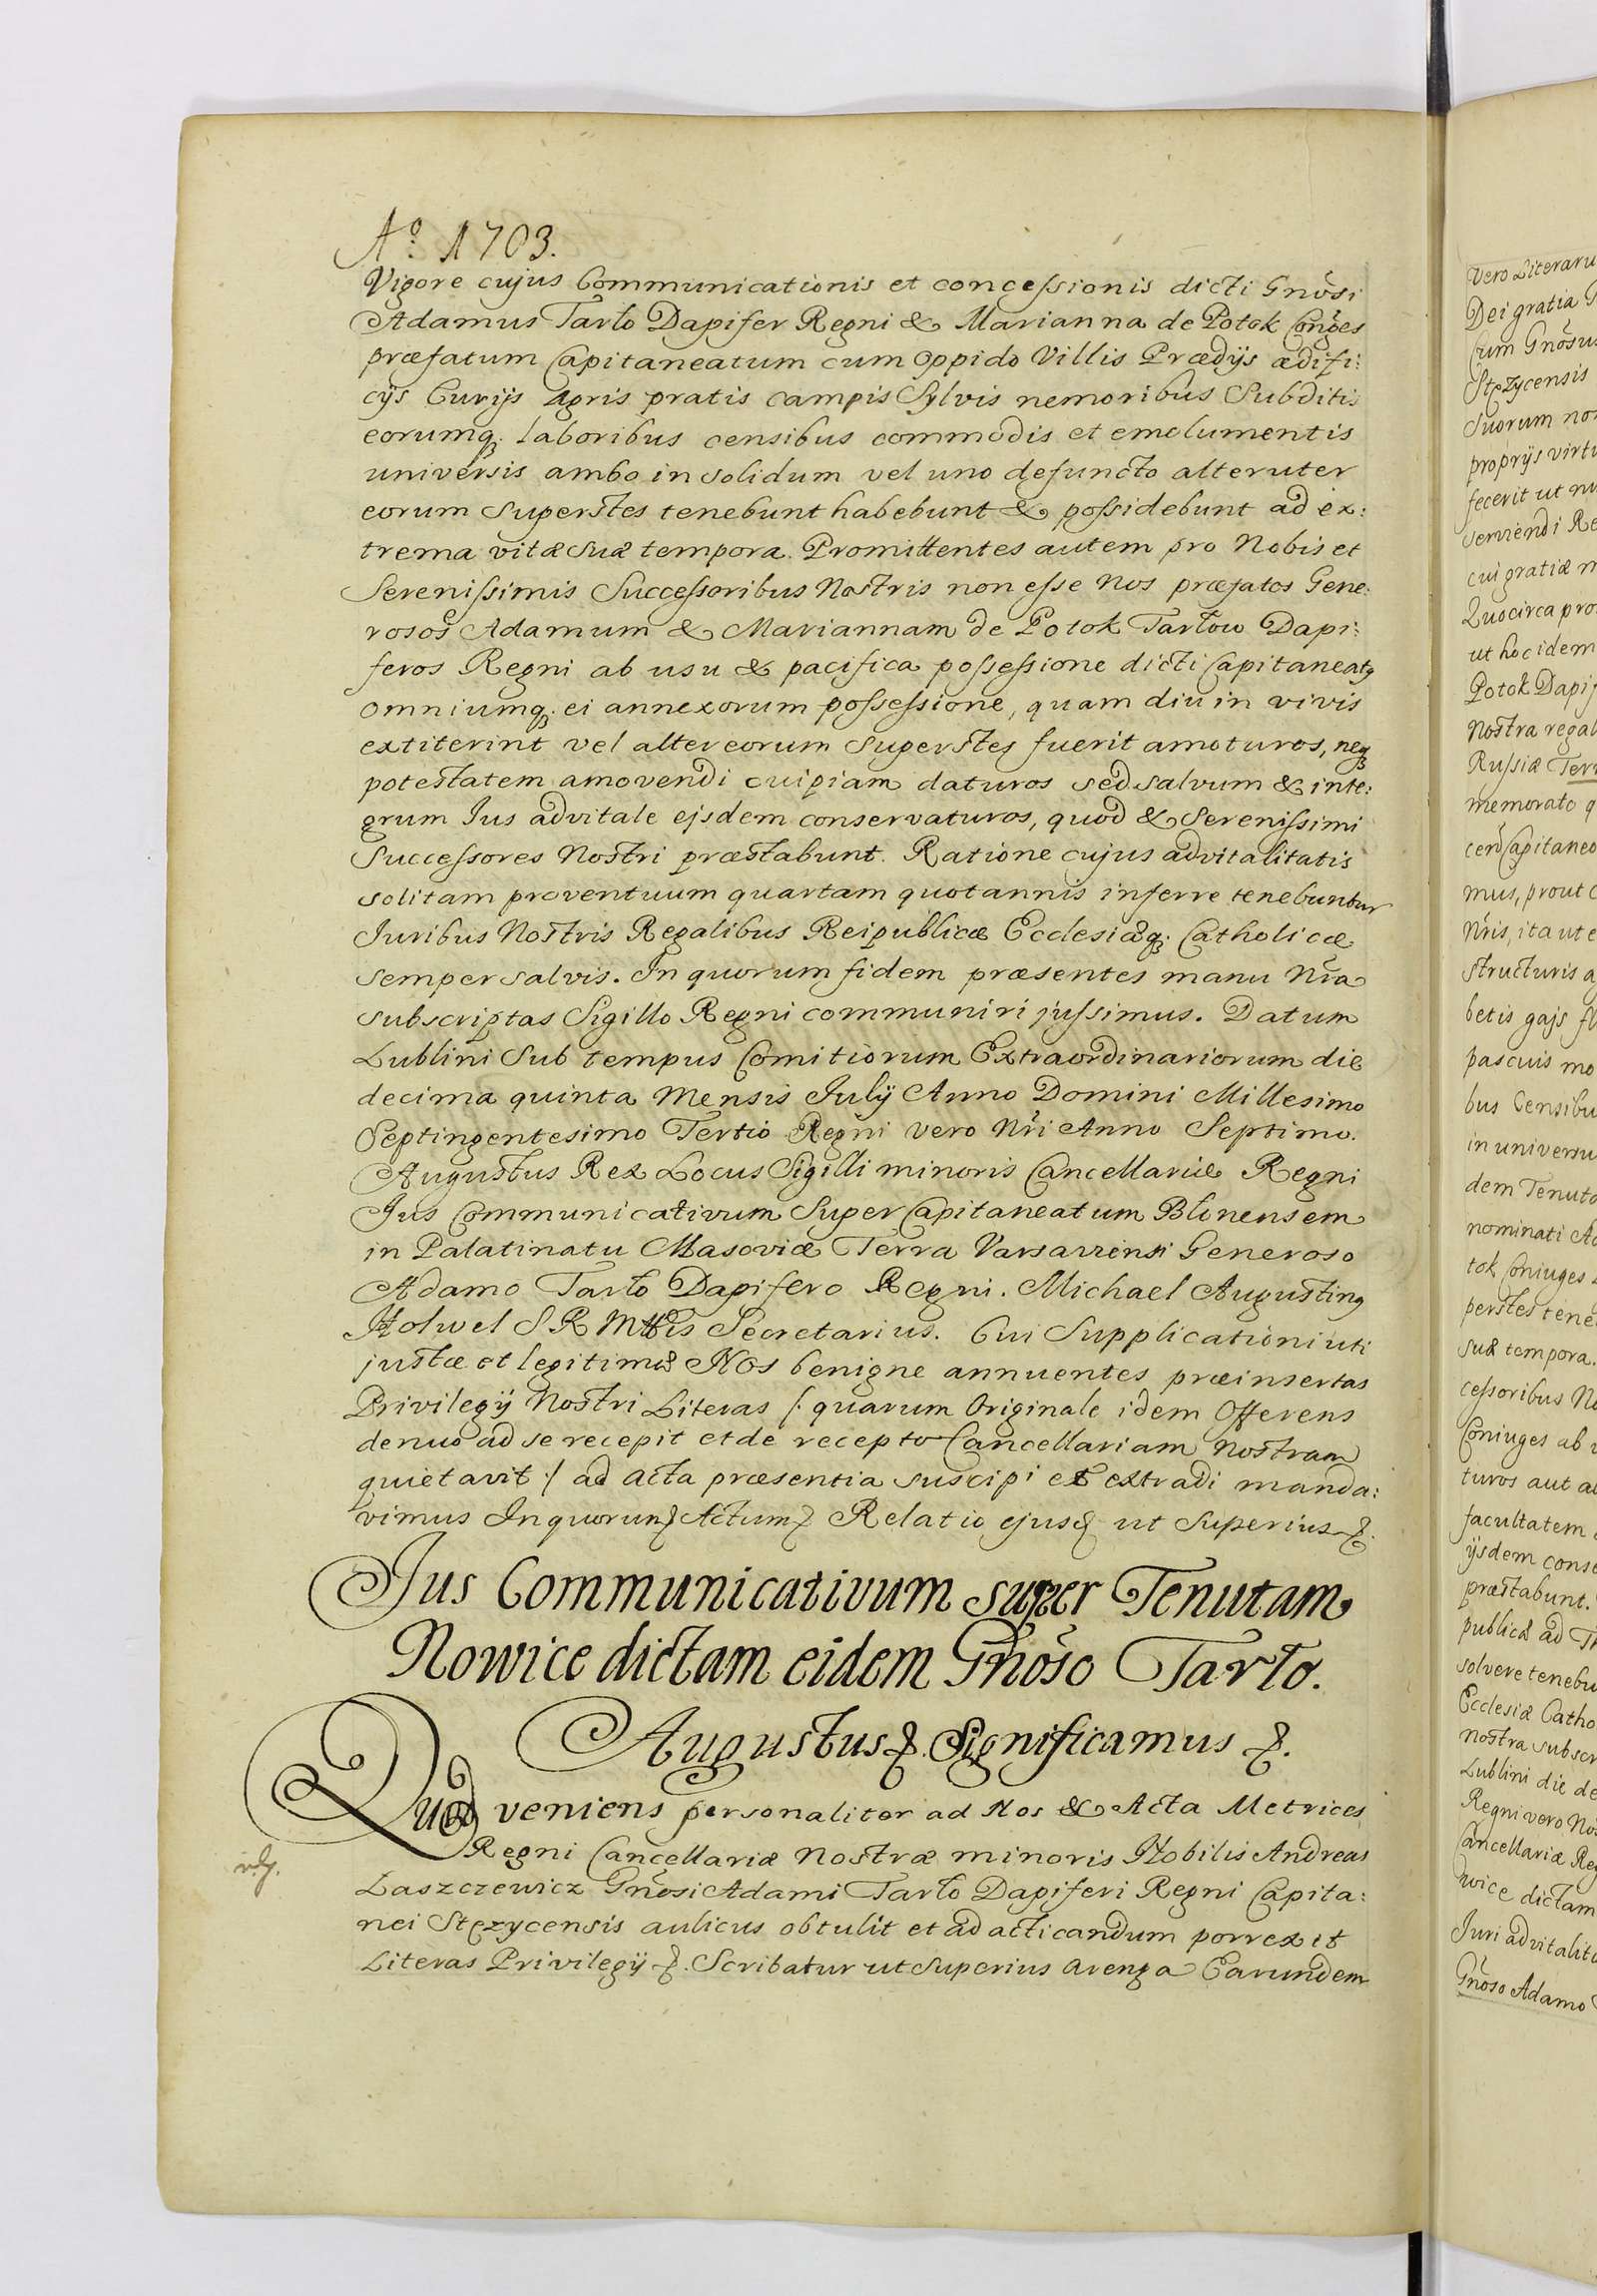 Aº 1703.
Vigore cujus Communicationis et concessionis dicti Gnosi
Adamus Tarło Dapifer Regni & Marianna de Potok Conges
præfatum Capitaneatum cum oppido Villis Prædijs ædifi:
cijs Curijs Agris pratis campis Sylvis nemoribus Subditis
eorumq. laboribus censibus commodis et emolumentis
universis ambo in solidum vel uno defuncto alteruter
eorum superstes tenebunt habebunt & possidebunt ad ex:
trema vitæ suæ tempora. Promittentes autem pro Nobis et
Serenissimis Successoribus Nostris non esse Nos præfatos Gene:
rosos Adamum & Mariannam de Potok Tarłow Dapi:
feros Regni ab usu & pacifica possessione dicti Capitaneatq
omniumq. ei annexorum possessione, quam diu in vivis
extiterint vel alter eorum superstes fuerit amoturos, neq
potestatem amovendi cuipiam daturos sed salvum & inte:
grum Ius advitale ejsdem conservaturos, quod & Serenissimi
Successores Nostri præstabunt. Ratione cujus advitalitatis
solitam proventuum quartam quotannis inferre tenebuntur
Iuribus Nostris Regalibus Reipublicæ Ecclesiæq. Catholicæ
semper salvis. In quorum fidem præsentes manu Nra
subscriptas Sigillo Regni communiri jussimus. Datum
Lublini Sub tempus Comitiorum Extraordinariorum die
decima quinta Mensis Julij Anno Domini Millesimo
Septingentesimo Tertio Regni vero Nri Anno Septimo.
Augustus Rex Locus Sigilli minoris Cancellariæ Regni
Jus Communicativum Super Capitaneatum Blinensem
in Palatinatu Masoviæ Terra Varsaviensi Generoso
Adamo Tarło Dapifero Regni. Michael Augustinq
Holwel S R Mttis Secretarius. Cui Supplicationi uti
justæ et legitimæ NOS benigne annuentes præinsertas
Privilegij Nostri Literas /: quarum Originale idem Offerens
denuo ad se recepit et de recepto Cancellariam Nostram
quietavit :/ ad acta præsentia suscipi et extradi manda:
vimus In quorum Actum Relatio ejusd ut superius
Jus Communicativum super Tenutam
Nowice dictam eidem Gnoso Tarło.
Augustus Significamus
Quod veniens personaliter ad Nos & Acta Metrices
Regni Cancellariæ Nostræ minoris Nobilis Andreas
Laszczewicz Gnosi Adami Tarło Dapiferi Regni Capita:
nei Stężycensis aulicus obtulit et ad acticandum porrexit
Literas Privilegij Scribatur ut superius arenga Earundem
vero Literaru
Dei gratia
cum Gnosu
Stężycensis
Suorum no
proprijs virtu
fecerit ut nu
serviendi Re
cui gratiæ m
Quocirca pro
ut hoc idem
Potok Dapif
Nostra regal
Russiæ Terr
memorato q
cen Capitaneo
mus, prout c
Nris, ita ut e
structuris a
betis gajs fl
pascuis mo
bus Censibu
in universu
dem Tenuta
nominati Ad
tok Coniuges
perstes tene
suæ tempora.
cessoribus No
Coniuges ab
turos aut al
facultatem
ijsdem conse
præstabunt.
publicæ ad T
solvere tenebu
Ecclesiæ Catho
nostra subscr
Lublini die de
Regni vero No
Cancellariæ Reg
wice dictam
Iuri advitalita
Gnoso Adamo